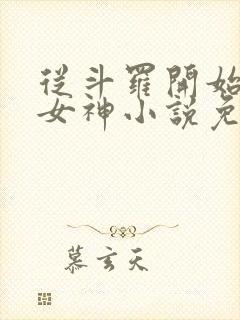 從斗羅開始
女神小說免
慕玄天